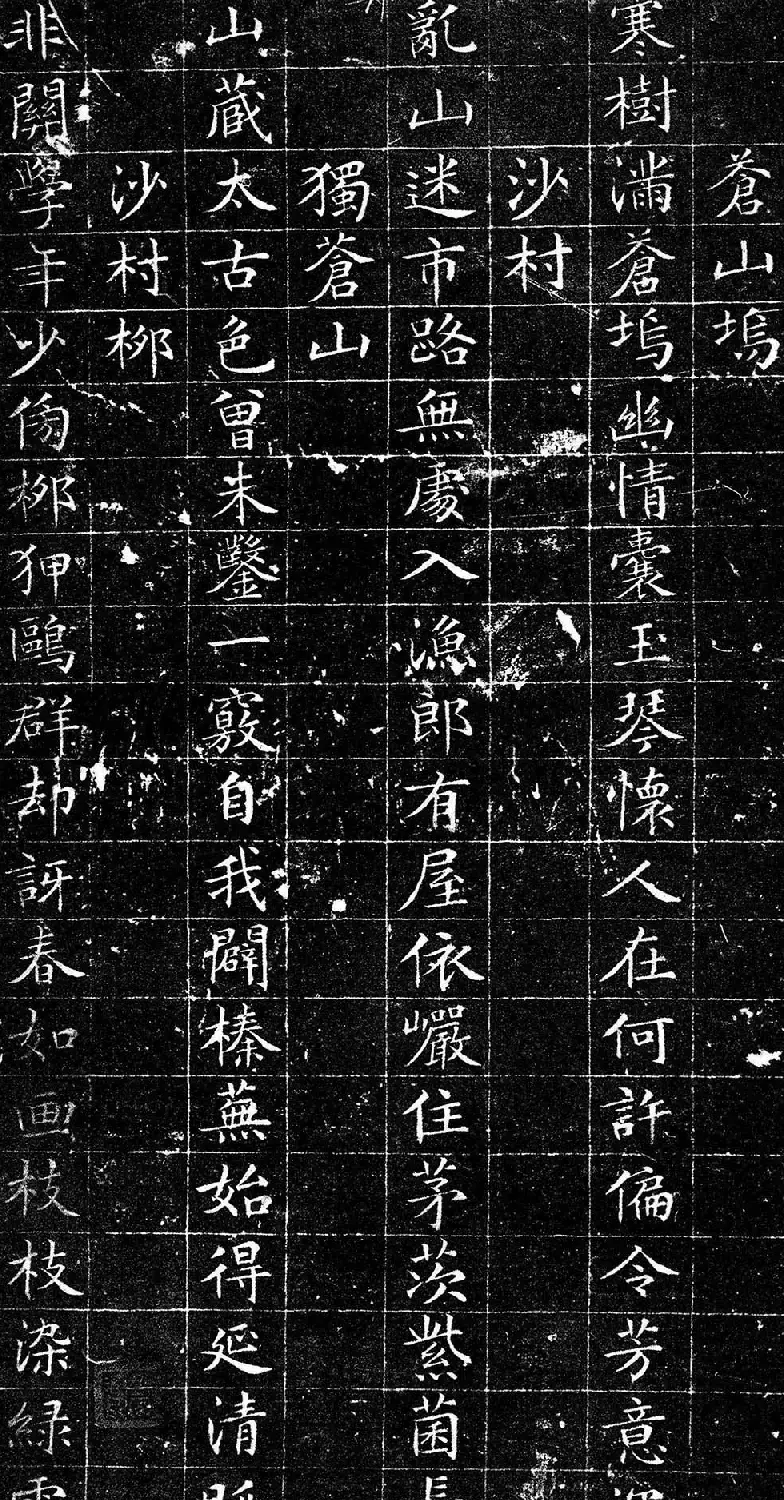 蒼山塢
寒樹滿蒼塢幽情囊玉琴懷人在何許偏令芳意
沙村
亂山迷市路無處入漁郎有屋依巖住茅茨紫菌長
獨蒼山
山藏太古色曾未鑿一竅自我闢榛蕪始得延清
沙村柳
非關學年少偽柳狎鷗群却訝春如画枝枝染綠雲